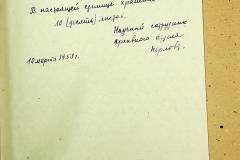 В настоящей единице хранения
10 (десять) листов.
Научный сотрудник
архивного отдела
10 марта 1953 г.